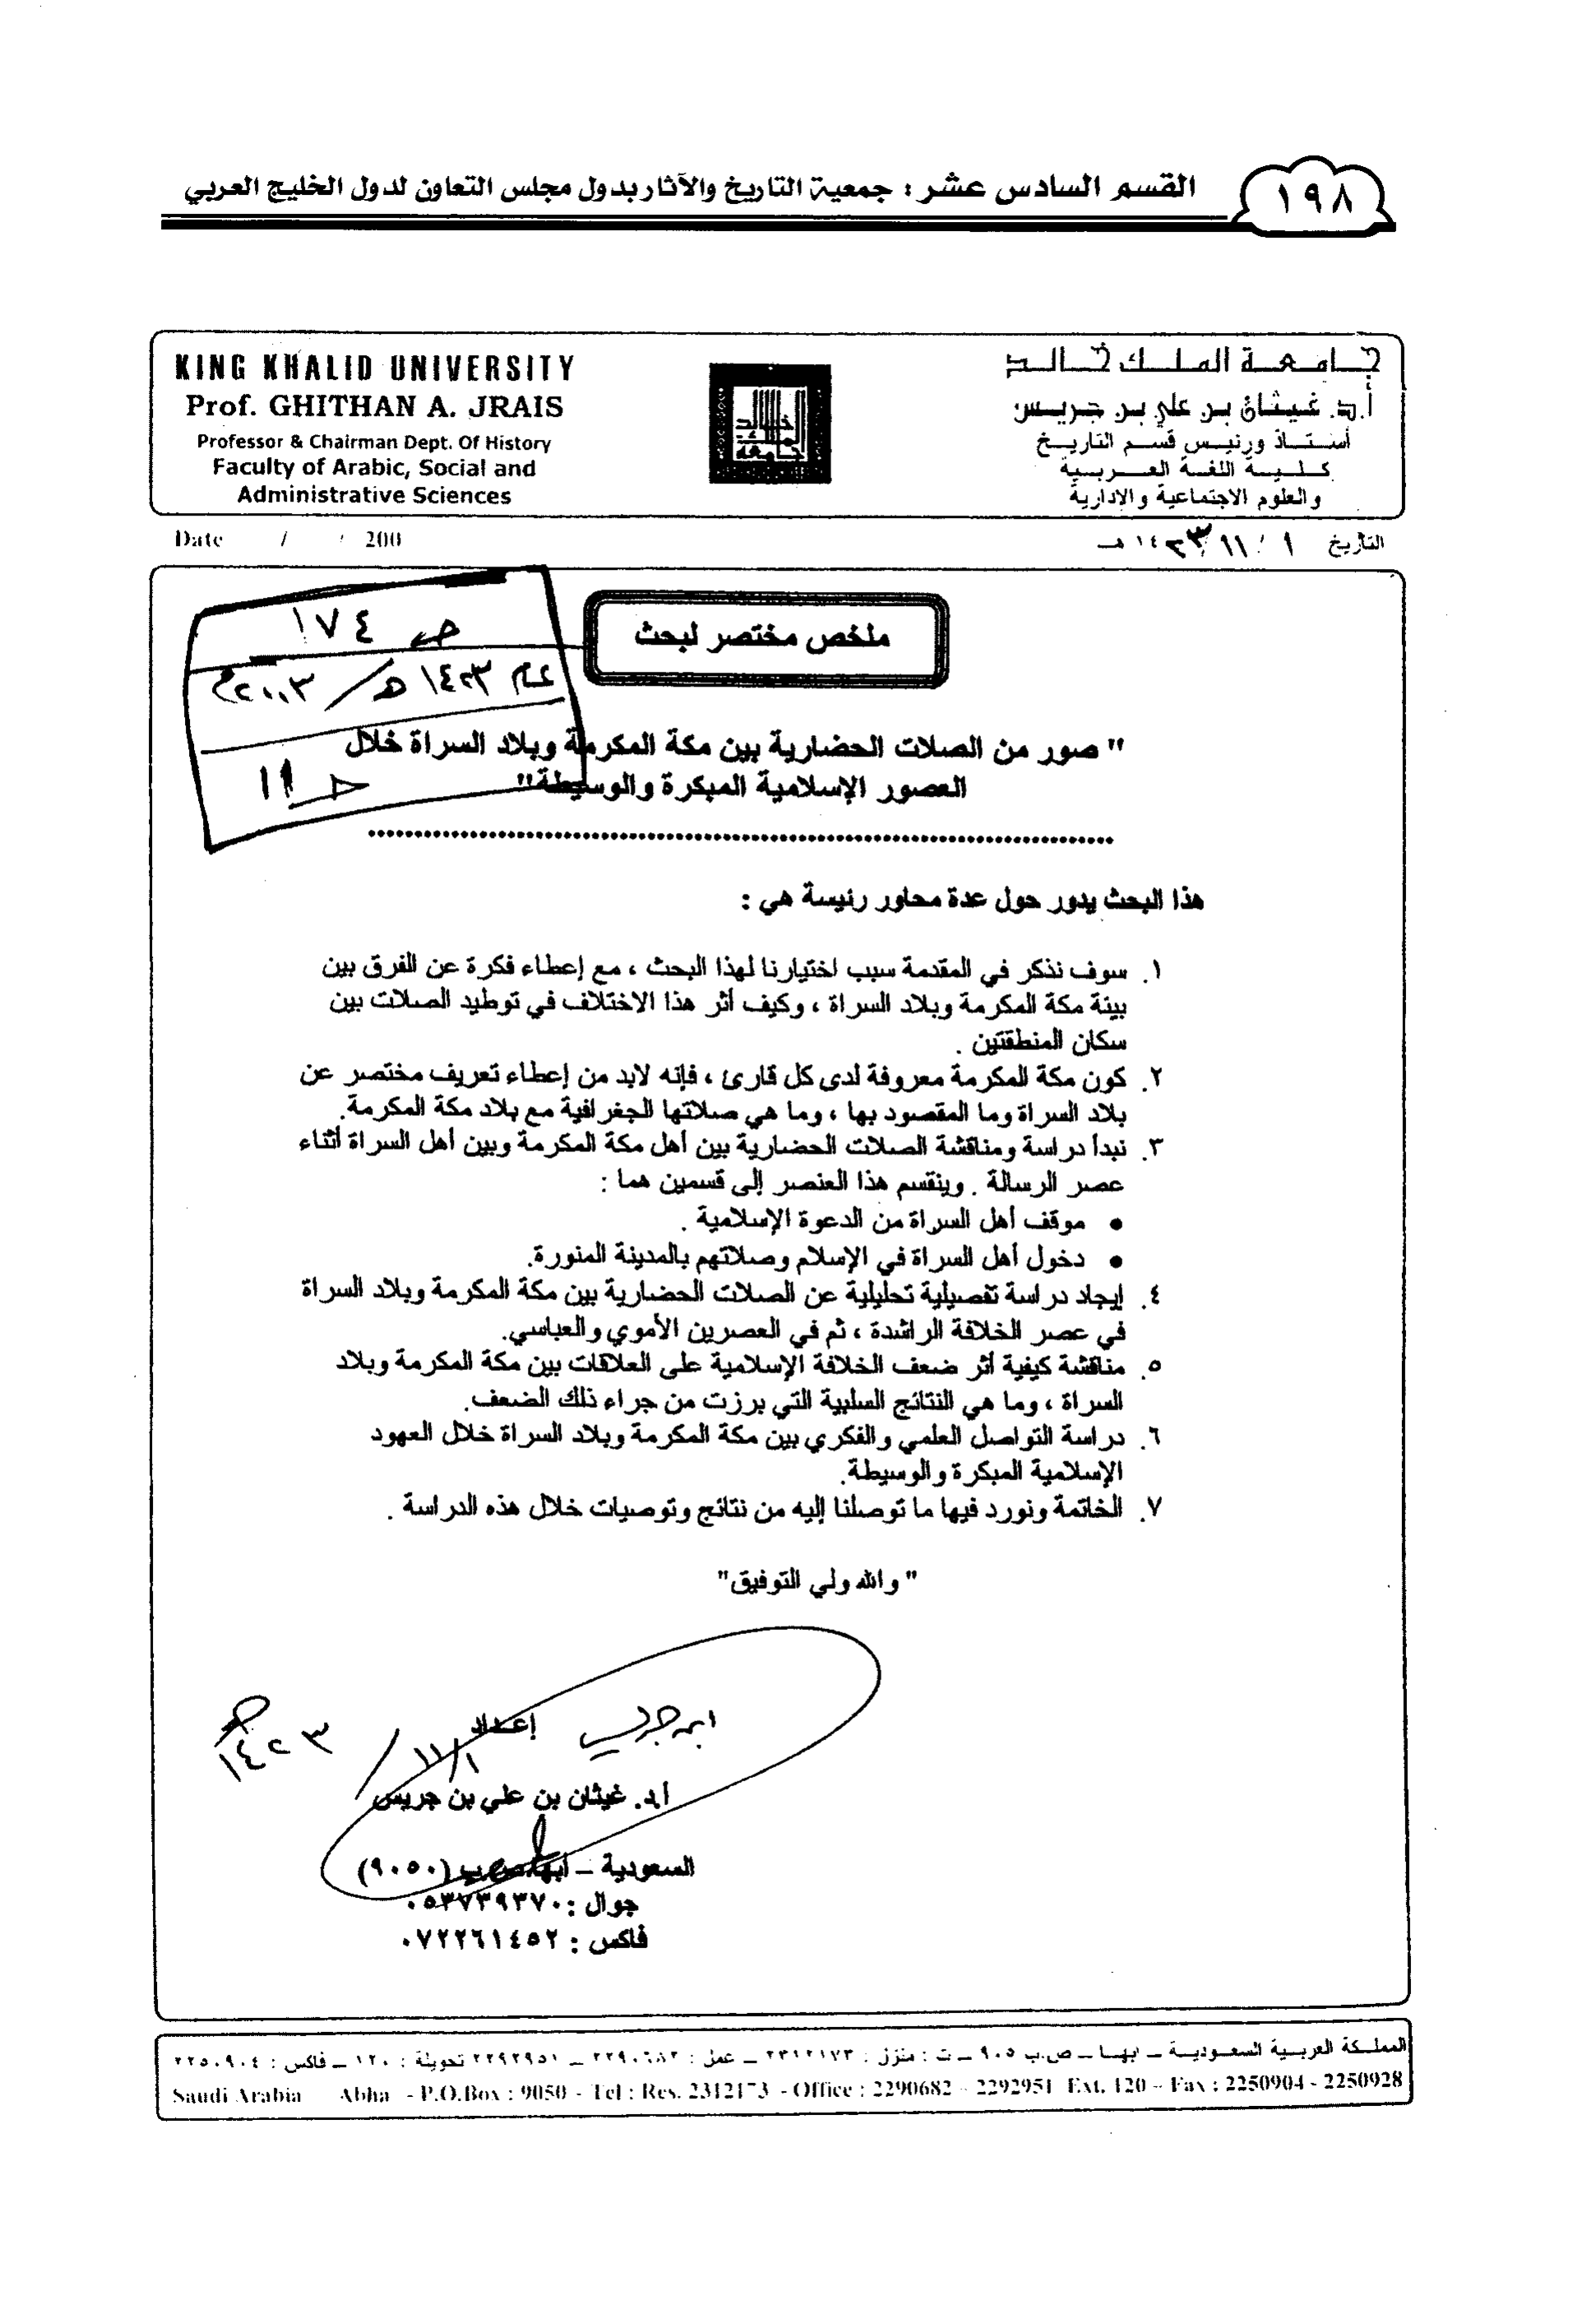 ١٩٨
القسم السادس عشر : جمعية التاريخ والآثار بدول مجلس التعاون لدول الخليج العربي
KING KHALID UNIVERSITY
Prof. GHITHAN A. JRAIS
Professor & Chairman Dept. Of History
Faculty of Arabic, Social and
Administrative Sciences
جامعة الملك خالد
أ.د. غيثان بن علي بن جريس
أستاذ ورئيس قسم التاريخ
كلية اللغة العربية
والعلوم الاجتماعية والإدارية
Date / / 200
التاريخ ١ / ١١ / ١٤٢٣ هـ
ص ١٧٤
عام ١٤٢٣ هـ / ٢٠٠٣م
حـ ١١
ملخص مختصر لبحث
" صور من الصلات الحضارية بين مكة المكرمة وبلاد السراة خلال
العصور الإسلامية المبكرة والوسيطة"
هذا البحث يدور حول عدة محاور رئيسة هي :
١. سوف نذكر في المقدمة سبب اختيارنا لهذا البحث ، مع إعطاء فكرة عن الفرق بين
بيئة مكة المكرمة وبلاد السراة ، وكيف أثر هذا الاختلاف في توطيد الصلات بين
سكان المنطقتين .
٢. كون مكة المكرمة معروفة لدى كل قارئ ، فإنه لابد من إعطاء تعريف مختصر عن
بلاد السراة وما المقصود بها ، وما هي صلاتها الجغرافية مع بلاد مكة المكرمة.
٣. نبدأ دراسة ومناقشة الصلات الحضارية بين أهل مكة المكرمة وبين أهل السراة أثناء
عصر الرسالة . وينقسم هذا العنصر إلى قسمين هما :
• موقف أهل السراة من الدعوة الإسلامية .
• دخول أهل السراة في الإسلام وصلاتهم بالمدينة المنورة.
٤. إيجاد دراسة تفصيلية تحليلية عن الصلات الحضارية بين مكة المكرمة وبلاد السراة
في عصر الخلافة الراشدة ، ثم في العصرين الأموي والعباسي.
٥. مناقشة كيفية أثر ضعف الخلافة الإسلامية على العلاقات بين مكة المكرمة وبلاد
السراة ، وما هي النتائج السلبية التي برزت من جراء ذلك الضعف.
٦. دراسة التواصل العلمي والفكري بين مكة المكرمة وبلاد السراة خلال العهود
الإسلامية المبكرة والوسيطة.
٧. الخاتمة ونورد فيها ما توصلنا إليه من نتائج وتوصيات خلال هذه الدراسة .
" والله ولي التوفيق"
إعداد
ابن جريس
١/١١/ ١٤٢٣هـ
أ.د. غيثان بن علي بن جريس
السعودية – أبها ص.ب (٩٠٥٠)
جوال : ٠٥٣٧٣٩٣٧٠
فاكس : ٠٧٢٢٦١٤٥٢
المملكة العربية السعودية – ابها – ص.ب ٩٠٥ – ت : منزل : ٢٣١٢١٧٣ – عمل : ٢٢٩٠٦٨٢ – ٢٢٩٢٩٥١ تحويلة : ١٢٠ – فاكس : ٢٢٥٠٩٠٤
Saudi Arabia Abha - P.O.Box : 9050 - Tel : Res. 2312173 - Office : 2290682 - 2292951 Ext. 120 - Fax : 2250904 - 2250928